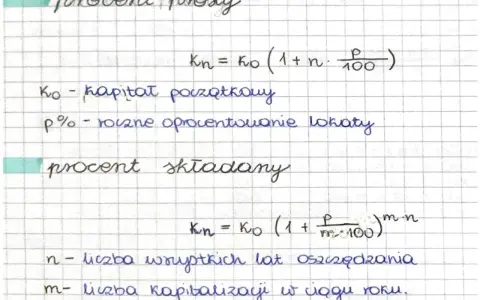 procent prosty
Kn = K0 (1 + n · p/100)
K0 - kapitał początkowy
p% - roczne oprocentowanie lokaty
procent składany
Kn = K0 (1 + p/m·100)^m·n
n - liczba wszystkich lat oszczędzania
m- liczba kapitalizacji w ciągu roku.